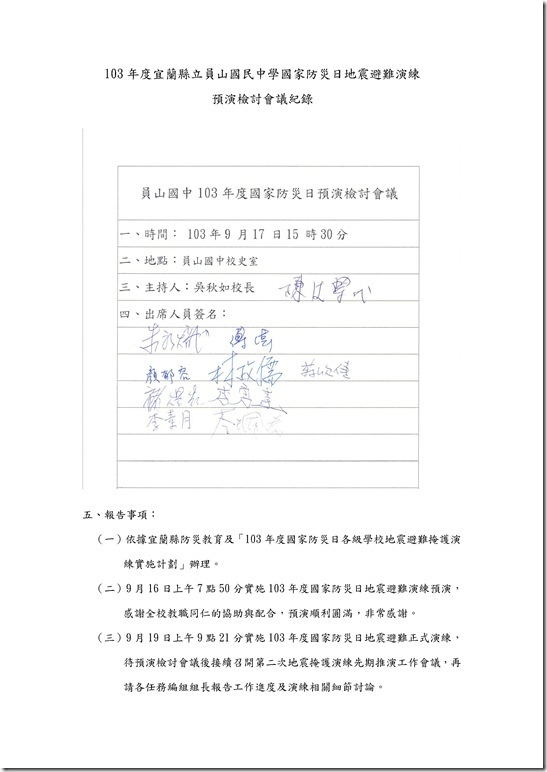 103 年度宜蘭縣立員山國民中學國家防災日地震避難演練
預演檢討會議紀錄
員山國中 103 年度國家防災日預演檢討會議
一、時間： 103 年 9 月 17 日 15 時 30 分
二、地點：員山國中校史室
三、主持人：吳秋如校長
四、出席人員簽名：
顏郁容
李素月
五、報告事項：
（一）依據宜蘭縣防災教育及「103 年度國家防災日各級學校地震避難掩護演
練實施計劃」辦理。
（二）9 月 16 日上午 7 點 50 分實施 103 年度國家防災日地震避難演練預演，
感謝全校教職同仁的協助與配合，預演順利圓滿，非常感謝。
（三）9 月 19 日上午 9 點 21 分實施 103 年度國家防災日地震避難正式演練，
待預演檢討會議後接續召開第二次地震掩護演練先期推演工作會議，再
請各任務編組組長報告工作進度及演練相關細節討論。